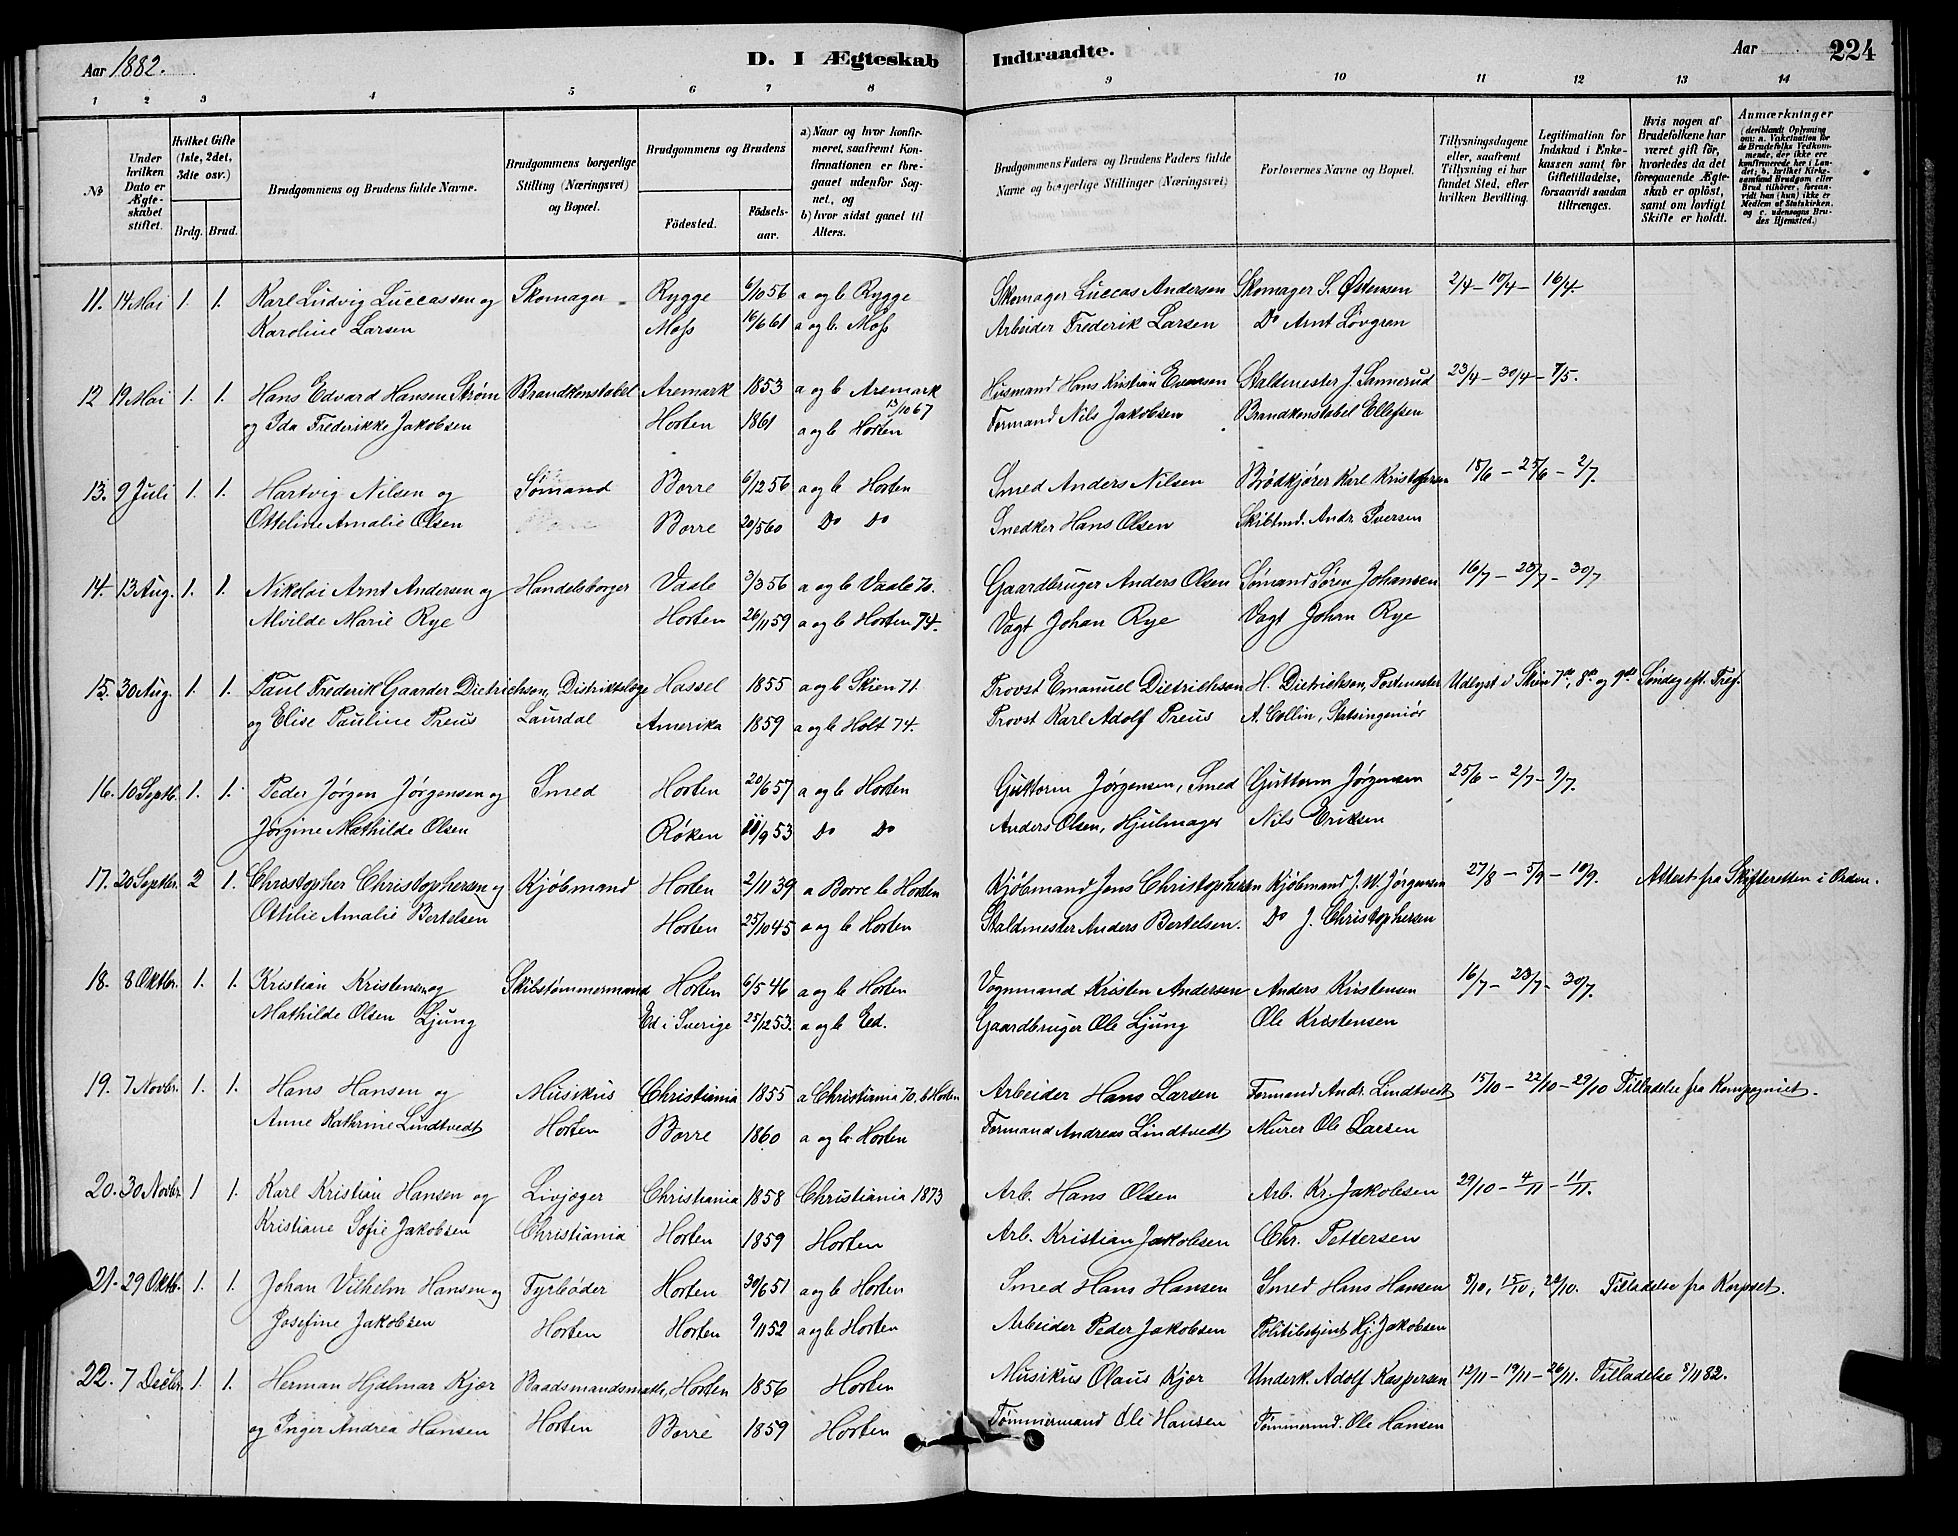 Aar 1882.
D. I Ægteskab Indtraadte.
Aar 224
1 2 3 4 5 6 7 8 9 10 11 12 13 14
No
Under hvilken Dato er Ægteskabet stiftet.
Hvilket Gifte (1ste, 2det, 3die osv.)
Brdg. Brud.
Brudgommens og Brudens fulde Navne.
Brudgommens borgerlige Stilling (Næringsvei) og Bopæl.
Brudgommens og Brudens
Fødested. Fødselsaar.
a) Naar og hvor konfirmeret, saafremt Konfirmationen er foregaaet udenfor Sognet, og
b) hvor sidst gaaet til Alters.
Brudgommens Faders og Brudens Faders fulde Navne og borgerlige Stillinger (Næringsvei)
Forlovernes Navne og Bopæl.
Tillysningsdagene eller, saafremt Tillysning ei har fundet Sted, efter hvilken Bevilling.
Legitimation for Indskud i Enkekassen samt for Giftetilladelse, forsaavidt saadan tiltrænges.
Hvis nogen af Brudefolkene har været gift før, hvorledes da det foregaaende Ægteskab er opløst, samt om lovligt Skifte er holdt.
Anmærkninger (deriblandt Oplysning om: a. Vakcination for de Brudefolks Vedkommende, der ikke ere konfirmerede her i Landet; b. hvilket Kirkesamfund Brudgom eller Brud tilhører, forsaavidt han (hun) ikke er Medlem af Statskirken. og c. udensogns Brudes Hjemsted.)
11. 14 Mai 1. 1. Karl Ludvig Luccassen og Skomager Rygge 6/10 56 a og b Rygge Skomager Luccas Andersen Skomager S. Østensen 2/4 - 10/4 - 16/4.
Karoline Larsen Moss 16/6 61 a og b. Moss Arbeider Frederik Larsen Do Arnt Lövgren
12 19 Mai 1. 1. Hans Edvard Hansen Strøm Brandkonstabel Aremark 1853 a og b Aremark Husmand Hans Kristian Evensen Staldmester J. Sannerud 23/4 - 30/4 - 7/5.
og Ida Frederikke Jakobsen Horten 1861 13/10 67 a og b Horten Formand Nils Jakobsen Brandkonstabel Ellefsen
13. 9 Juli 1. 1. Hartvig Nilsen og Sømand Borre 6/12 56 a og b Horten Smed Anders Nilsen Brödkjörer Karl Kristofersen 18/6 - 25/6 - 2/7.
Otteline Amalie Olsen Borre 20/5 60 Do Do Snedker Hans Olsen Skibtmd. Andr. Iversen
14. 13 Aug. 1. 1. Nikolai Arnt Andersen og Handelsborger Vaale 3/3 56 a og b Vaale 70. Gaardbruger Anders Olsen Sømand Søren Johansen 16/7 - 23/7 - 30/7
Alvilde Marie Rye Horten 26/11 59 a og b Horten 74. Vagt Johan Rye Vagt Johan Rye
15. 30 Aug. 1. 1. Paul Frederik Gaarder Dietrichson, Distriktslæge Hassel 1855 a og b Skien 71. Provst Emanuel Dietrichson H. Dietrichson, Postmester Udlyst i Skien 7de, 8de og 9de Søndag eft. Tref.
og Elise Pauline Preus Laurdal Amerika 1859 a og b Holt 74. Provst Karl Adolf Preus A. Collin, Statsingeniör
16. 10 Septb. 1. 1. Peder Jørgen Jørgensen og Smed Horten 20/6 57 a og b Horten Guttorm Jørgensen, Smed Guttorm Jørgensen 25/6 - 2/7 - 9/7.
Jørgine Mathilde Olsen Røken 11/9 53 Do Do Anders Olsen, Hjulmager Nils Eriksen
17. 20 Septbr. 2 1. Christopher Christophersen og Kjøbmand Horten 2/11 39 a Borre b Horten Kjøbmand Jens Christophersen Kjøbmand J. W. Jørgensen 27/8 - 3/9 - 10/9. Attest fra Skifteretten i Orden.
Ottilie Amalie Bertelsen Horten 25/10 45 a og b Horten Staldmester Anders Bertelsen. Do J. Christophersen
18. 8 Oktbr. 1. 1. Kristian Kristensen og Skibstømmermand Horten 6/5 46 a og b Horten Vognmand Kristen Andersen Anders Kristensen 16/7 - 23/7 - 30/7.
Mathilde Olsen Ljung Ed i Sverige 25/12 53. a og b Eed. Gaardbruger Ole Ljung Ole Kristensen
19. 7 Novbr. 1. 1. Hans Hansen og Musikus Christiania 1855 a Christiania 70. b Horten Arbeider Hans Larsen Formand Andr. Lindtvedt 15/10 - 22/10 - 29/10 Tilladelse fra Kompagniet.
Anne Kathrine Lindtvedt Horten Borre 1860 a og b Horten Formand Andreas Lindtvedt Murer Ole Larsen
20. 30 Novbr. 1 1. Karl Kristian Hansen og Livjæger Christiania 1858 Christiania 1873 Arb. Hans Olsen Arb. Kr. Jakobsen 29/10 - 4/11 - 11/11.
Kristiane Sofie Jakobsen Christiania Horten 1859 Horten Arb. Kristian Jakobsen Chr. Pettersen
21. 29 Oktb. 1. 1. Johan Vilhelm Hansen og Fyrbøder Horten 30/6 51 a og b Horten Smed Hans Hansen Smed Hans Hansen 8/10, 15/10, 22/10. Tilladelse fra Korpset.
Josefine Jakobsen Horten Horten 9/11 52 a og b Horten Arbeider Peder Jakobsen Politibetjent Hj. Jakobsen
22. 7 Decbr. 1. 1. Herman Hjalmar Kjær Baadsmandsmath, Horten 1856 Horten Musikus Olaus Kjær Underk. Adolf Kaspersen 12/11 - 19/11 - 26/11. Tilladelse 8/11 82.
og Inger Andrea Hansen Horten Borre 1859 Horten Tømmermand Ole Hansen Tømmermd. Ole Hansen